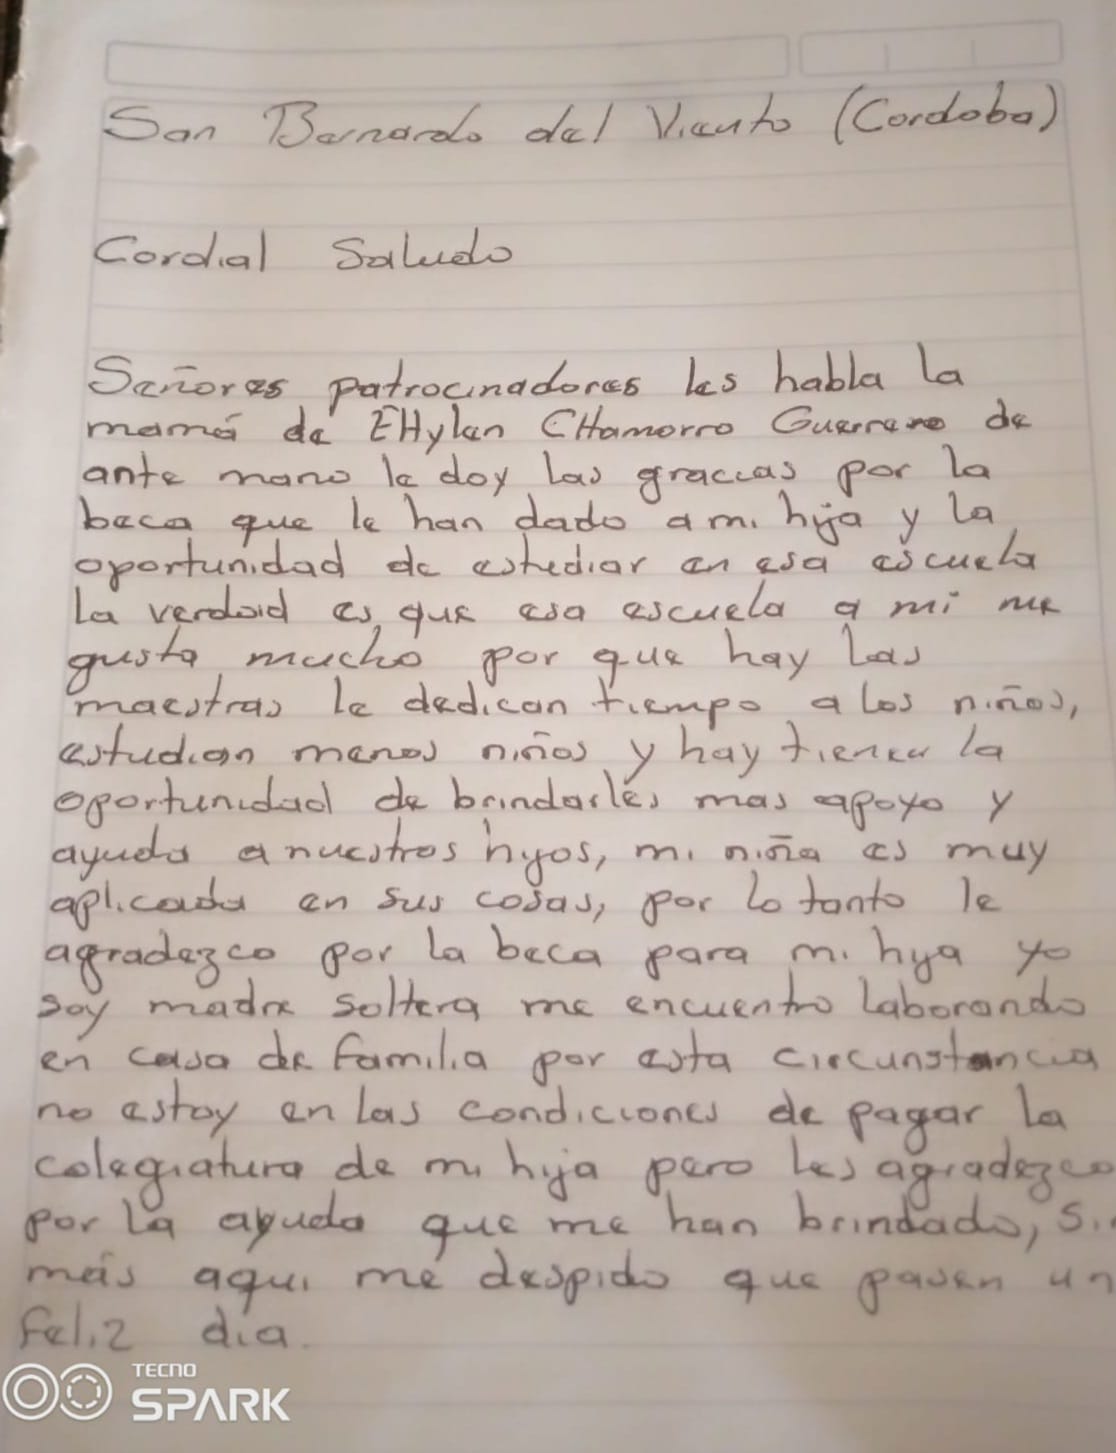 San Bernardo del Viento (Cordoba)
Cordial Saludo
Señores patrocinadores les habla la
mamá de EHylen CHamorro Guerrero de
ante mano le doy las gracias por la
beca que le han dado a mi hija y la
oportunidad de estudiar en esa escuela
La verdaid es que esa escuela a mi me
gusta mucho por que hay las
maestras le dedican tiempo a los niños,
estudian menos niños y hay tienen la
oportunidad de brindarles mas apoyo y
ayuda a nuestros hyos, mi niña es muy
aplicada en sus cosas, por lo tanto le
agradezco por la beca para mi hya yo
soy madre soltera me encuentro laborando
en casa de familia por esta circunstancia
no estoy en las condiciones de pagar la
colegiatura de mi hija pero les agradezco
por la ayuda que me han brindado, Sin
más aqui me despido que pasen un
feliz dia.
TECNO
SPARK